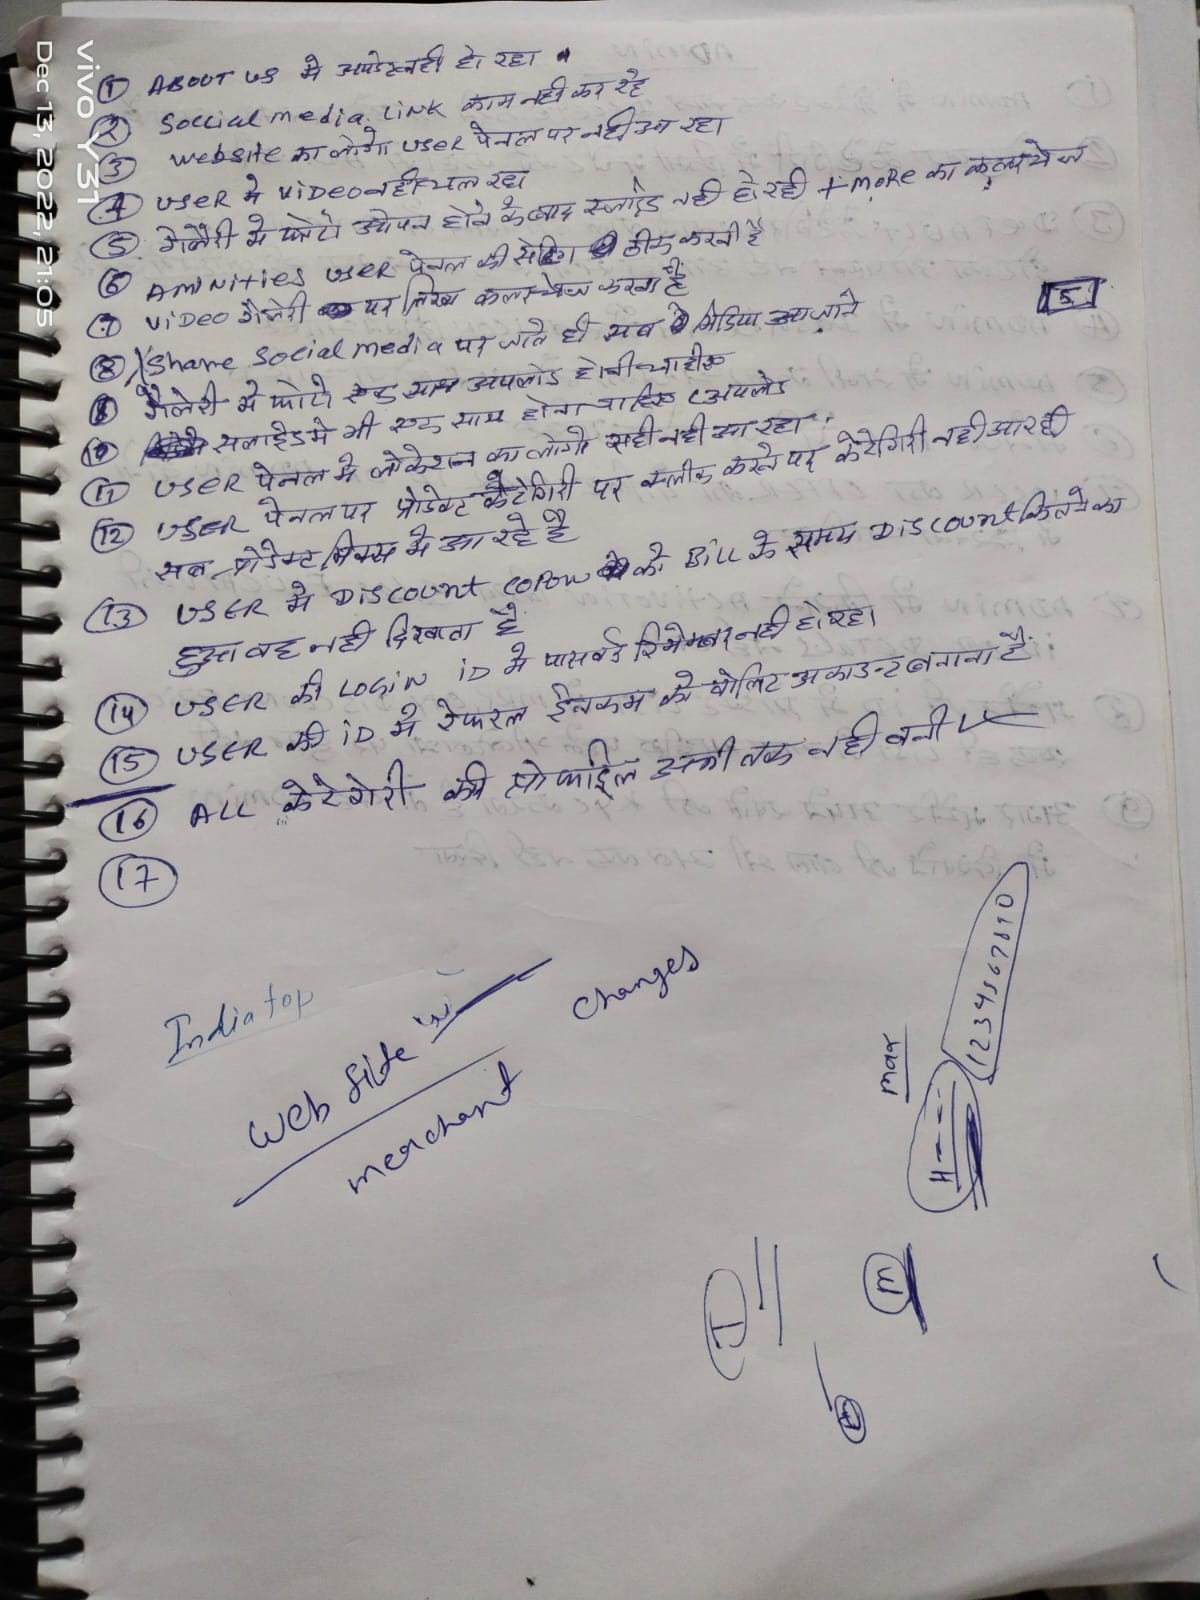 ① ABOUT US मे अपडेट नही हो रहा
② Soccial media. Link काम नही कर रहे
③ website का लोगो USER पेनल पर नही आ रहा
④ USER मे ViDEO नही चल रहा
⑤ गैलेरी मे फोटो ओपन होने के बाद स्लाईड नही हो रही + MORE का कलर चेंज
⑥ AMINITIES USER पेनल की सेटिंग ठीक करनी है
⑦ ViDEO गैलेरी पर लिखा कलर चेंज करना है
⑧ Share Social media पर जाते ही सब मिडिया आ जाने
⑨ गैलेरी मे फोटो एक साथ अपलोड होनी चाहीए
10 सलाईड मे भी एक साथ होना चाहिए (अपलोड
⑪ USER पेनल मे लोकेशन का लोगो सही नही आ रहा
⑫ USER पेनल पर प्रोडेक्ट केटेगिरी पर क्लीक करने पर केटेगिरी नही आ रही
सब प्रोडेक्ट मिक्स मे आ रहे है
⑬ USER मे DISCOUNT COPON को BILL के समय DISCOUNT कितने का
हुआ वह नही दिखाता है
⑭ USER की LOGIN ID मे पासवर्ड रिमेम्बर नही हो रहा
⑮ USER की ID मे रेफरल ईनकम को वोलिट अकाउन्ट बनाना है
⑯ ALL केटेगेरी की प्रोफाईल अभी तक नही बनी
⑰
5
Indiatop
Web Site
changes
merchant
max
1234567890
H
m
I
vivo Y31
Dec 13, 2022, 21:05